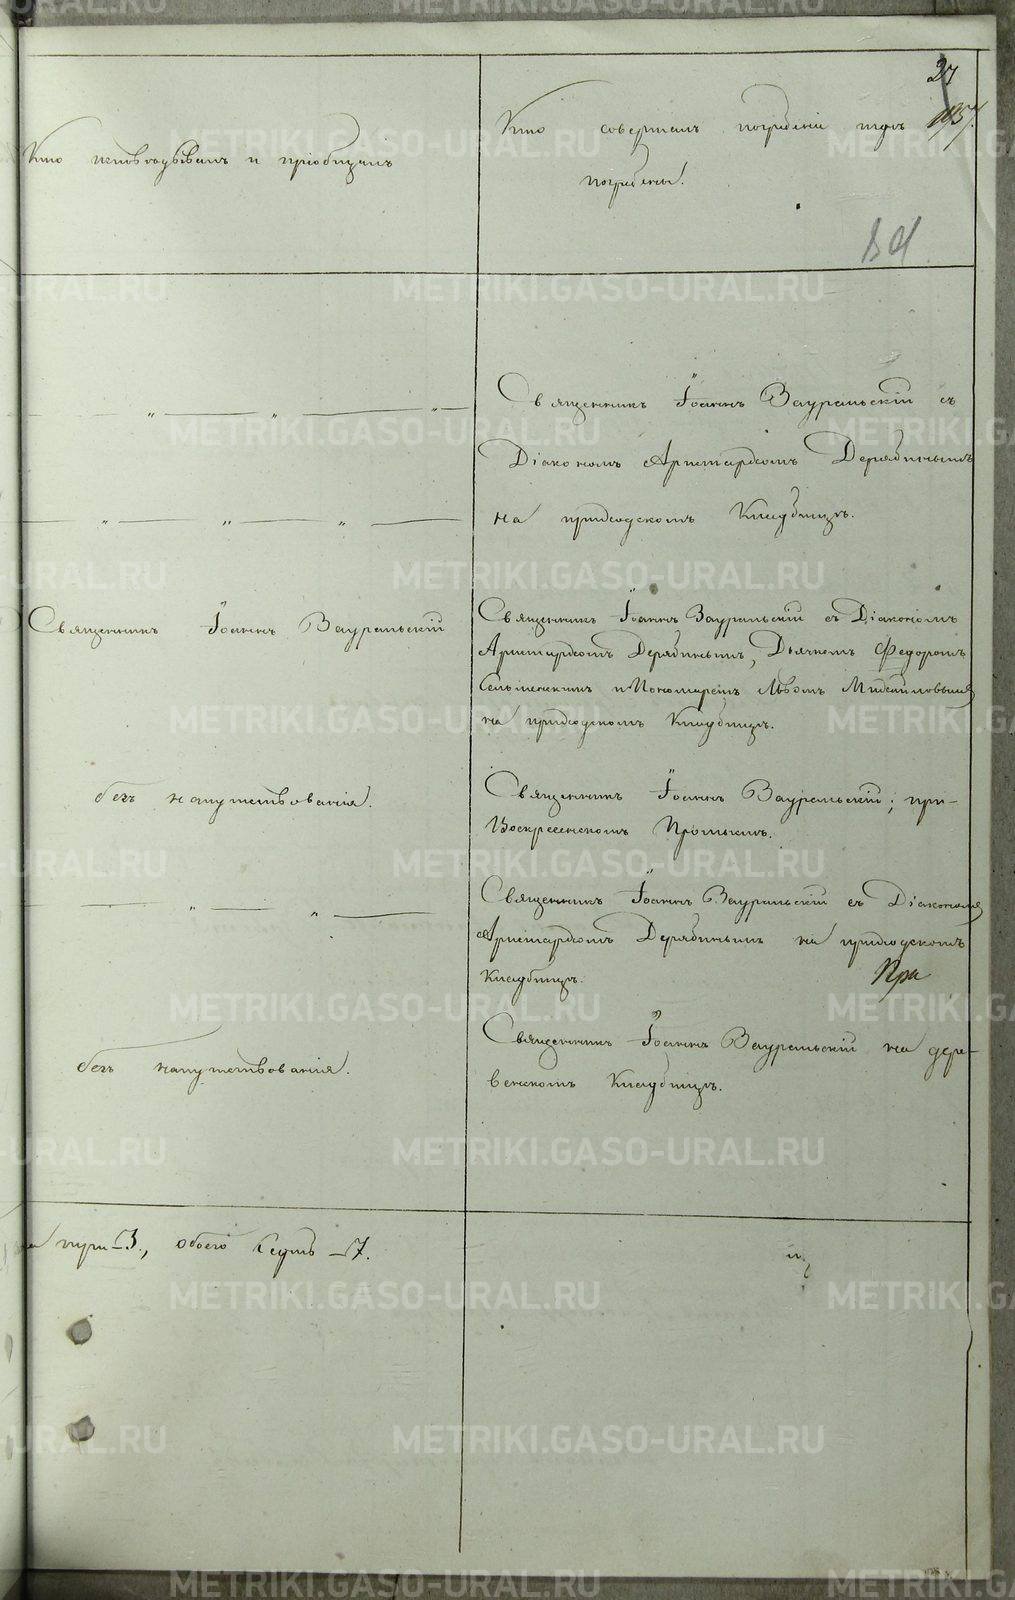 27
Кто исповѣдывалъ и пріобщалъ
Кто совершалъ погребеніе и гдѣ
погребены.
Священникъ Іоаннъ Зауральскій съ
Діакономъ Аристархомъ Дерябинымъ
на приходскомъ Кладбищѣ.
Священникъ Іоаннъ Зауральскій
Священникъ Іоаннъ Зауральскій съ Діакономъ
Аристархомъ Дерябинымъ, Дьячкомъ Федоромъ
и Пономаремъ Львомъ
на приходскомъ Кладбищѣ.
безъ напутствованія.
Священникъ Іоаннъ Зауральскій; при-
Воскресенскомъ
Священникъ Іоаннъ Зауральскій съ Діакономъ
Аристархомъ Дерябинымъ на приходскомъ
Кладбищѣ.
безъ напутствованія.
Священникъ Іоаннъ Зауральскій на дере-
венскомъ Кладбищѣ.
3., обоего 7.
METRIKI.GASO-URAL.RU